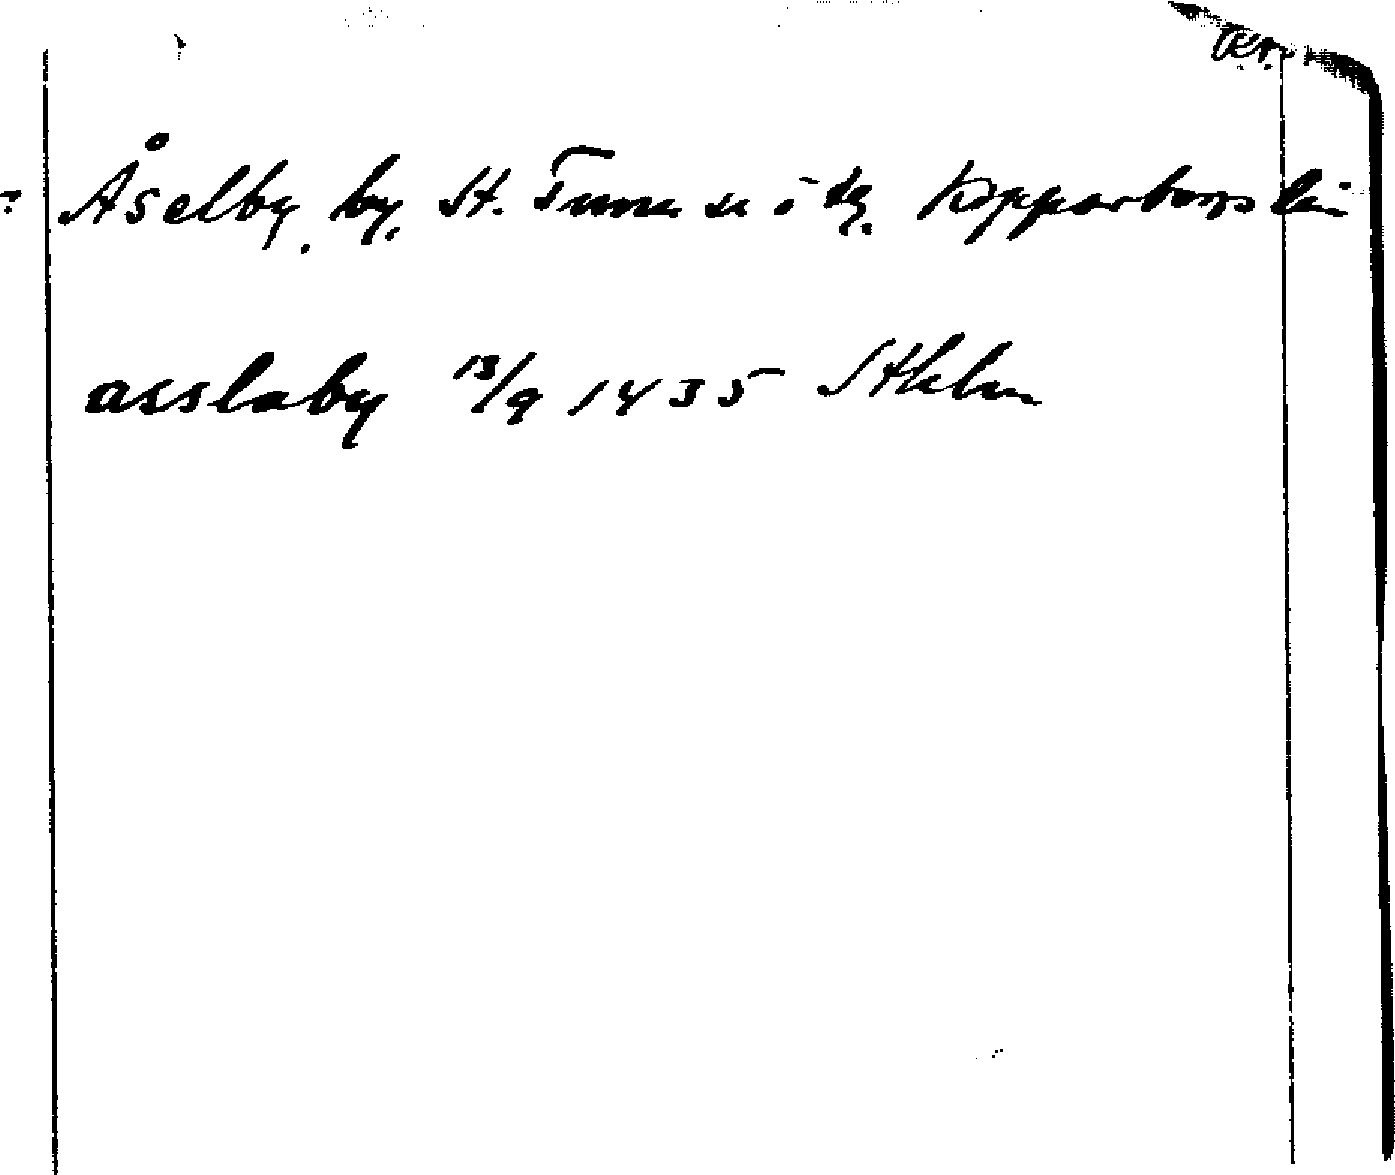 Åselby, by, St. Tuna sn o tg. Kopparbergs län
asslaby 13/9 1435 Sthlm